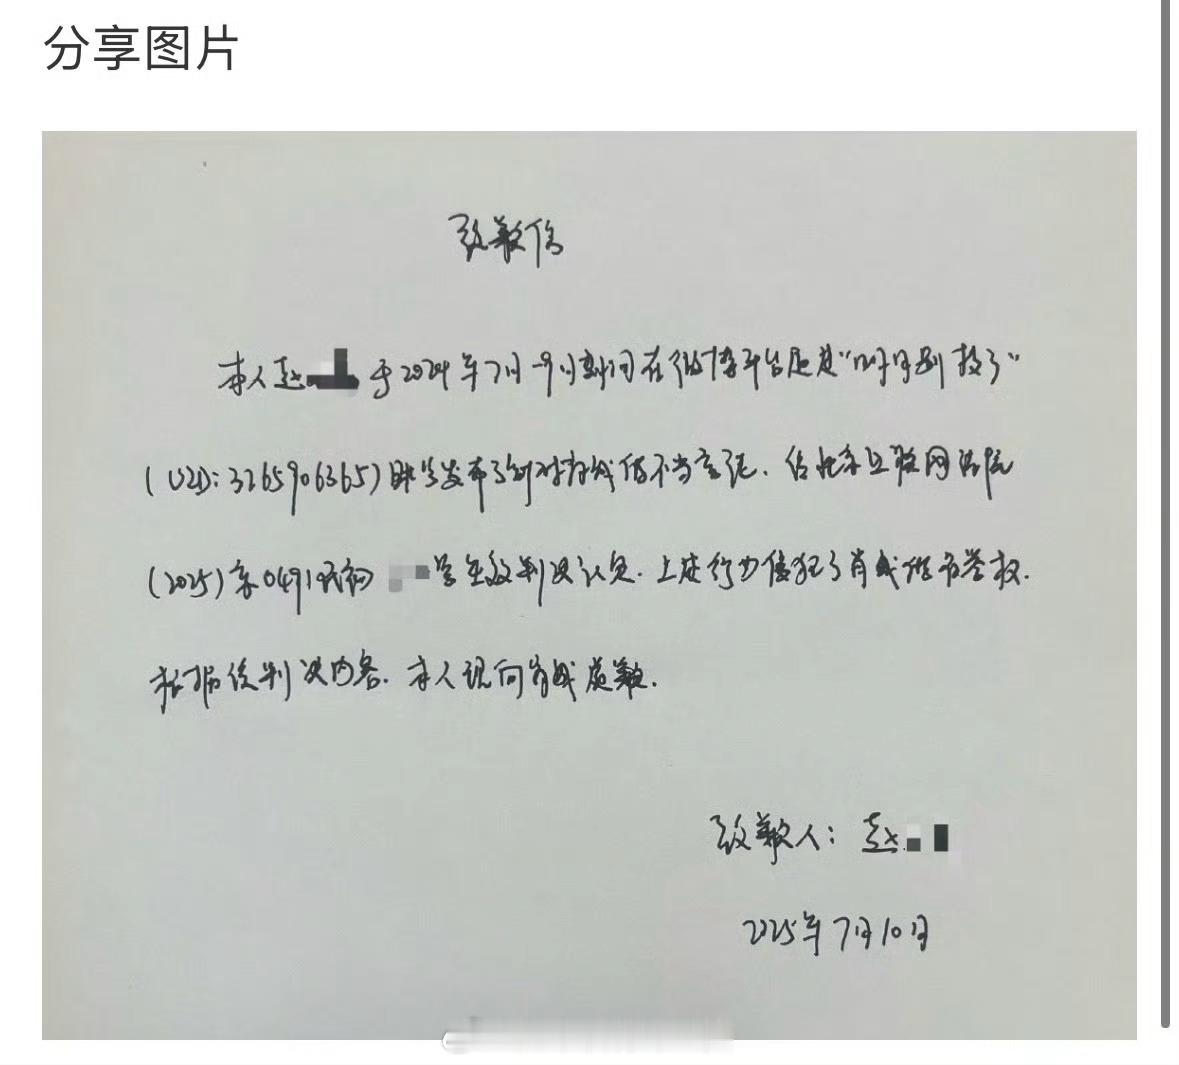 分享图片
致歉信
本人赵 于2024年7月-9月期间在微博平台通过“
(UID:3265906365)账号发布了针对肖战的不当言论.经北京互联网法院
(2025)京0491民初 号生效判决认定.上述行为侵犯了肖战的名誉权.
根据该判决内容.本人现向肖战道歉.
致歉人:赵
2025年7月10日